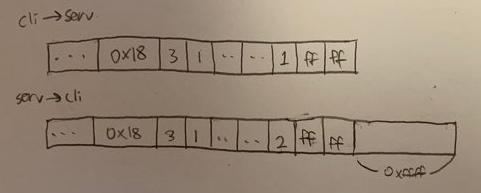 cli→serv
... 0x18 3 1 .. .. 1 ff ff
serv→cli
... 0x18 3 1 .. .. 2 ff ff
0xffff